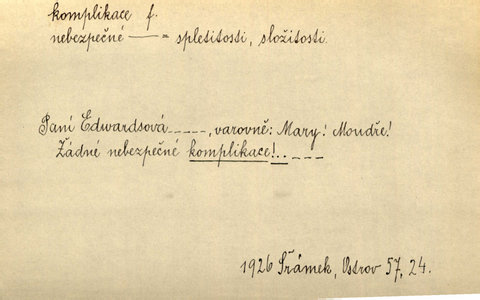 komplikace f.
nebezpečné —— = spletitosti, složitosti.
Paní Edwardsová _ _ _ _ _, varovně: Mary! Moudře!
Žádné nebezpečné komplikace!.. _ _ _
1926 Šrámek, Ostrov 57, 24.